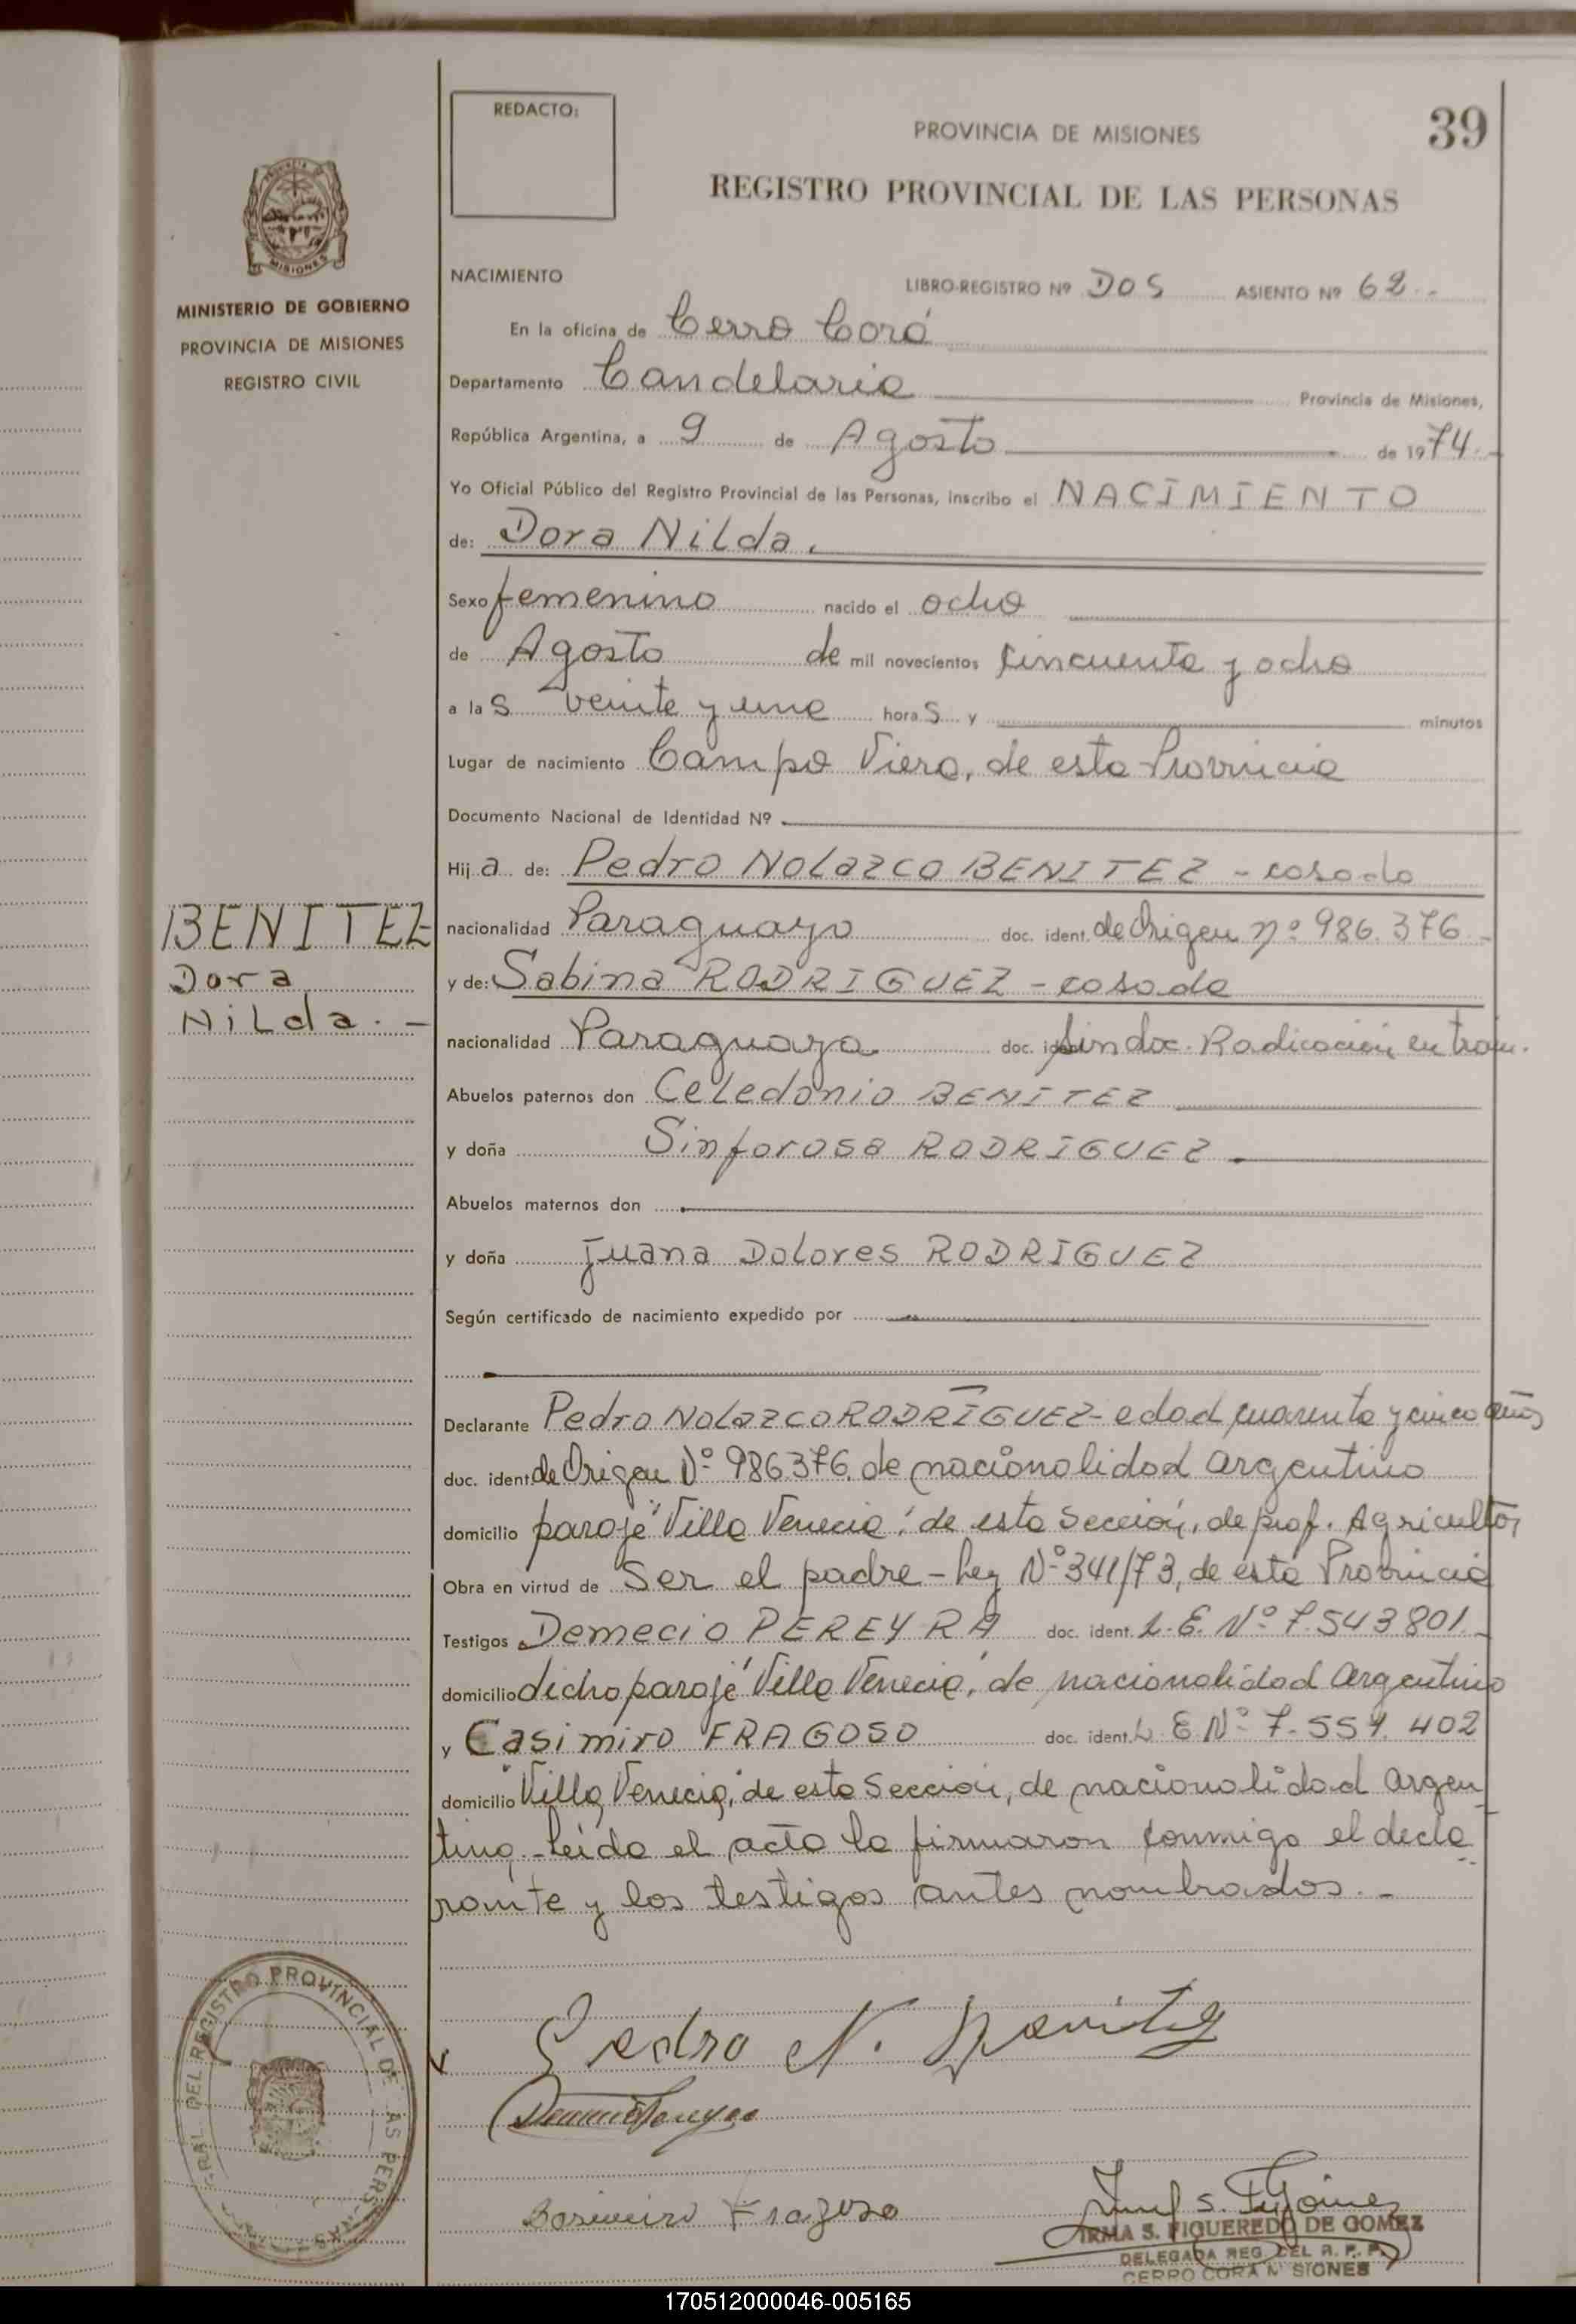 REDACTO:
PROVINCIA DE MISIONES
39
REGISTRO PROVINCIAL DE LAS PERSONAS
PROVINCIA
MISIONES
MINISTERIO DE GOBIERNO
PROVINCIA DE MISIONES
REGISTRO CIVIL
NACIMIENTO LIBRO-REGISTRO Nº DOS ASIENTO Nº 62.-
En la oficina de Cerro Corá
Departamento Candelaria Provincia de Misiones,
República Argentina, a 9 de Agosto de 1974.-
Yo Oficial Público del Registro Provincial de las Personas, inscribo el NACIMIENTO
de: Dora Nilda.
Sexo femenino nacido el ocho
de Agosto de mil novecientos cincuenta y ocho
a las veinte y una horas y minutos
Lugar de nacimiento Campo Viera, de esta Provincia
Documento Nacional de Identidad Nº
Hija de: Pedro Nolazco BENITEZ - casado
BENITEZ
Dora
Nilda.-
nacionalidad Paraguayo doc. ident. de Origen nº 986.376 -
y de: Sabina RODRIGUEZ - casada
nacionalidad Paraguaya doc. ident. Sin doc. Radicación en trám.
Abuelos paternos don Celedonio BENITEZ
y doña Sinforosa RODRIGUEZ.
Abuelos maternos don
y doña Juana Dolores RODRIGUEZ
Según certificado de nacimiento expedido por
Declarante Pedro Nolazco RODRIGUEZ - edad cuarenta y cinco años
doc. ident. de Origen Nº 986376. de nacionalidad argentino
domicilio paraje "Villa Venecia", de esta Sección, de prof. Agricultor
Obra en virtud de Ser el padre - Ley Nº 341/73, de esta Provincia
Testigos Demecio PEREYRA doc. ident. L.E. Nº 7.543.801.-
domicilio dicho paraje "Villa Venecia", de nacionalidad argentino
y Casimiro FRAGOSO doc. ident. L.E. Nº 7.551.402
domicilio "Villa Venecia", de esta Sección, de nacionalidad argen
tino.- Leída el acta la firmaron conmigo el decla
rante y los testigos antes nombrados.-
Pedro N. Benitez
Casimiro Fragoso
REGISTRO PROVINCIAL DE LAS PERSONAS
IRMA S. FIGUEREDO DE GOMEZ
DELEGADA REG. DEL R. P. P.
CERRO CORA MISIONES
170512000046-005165